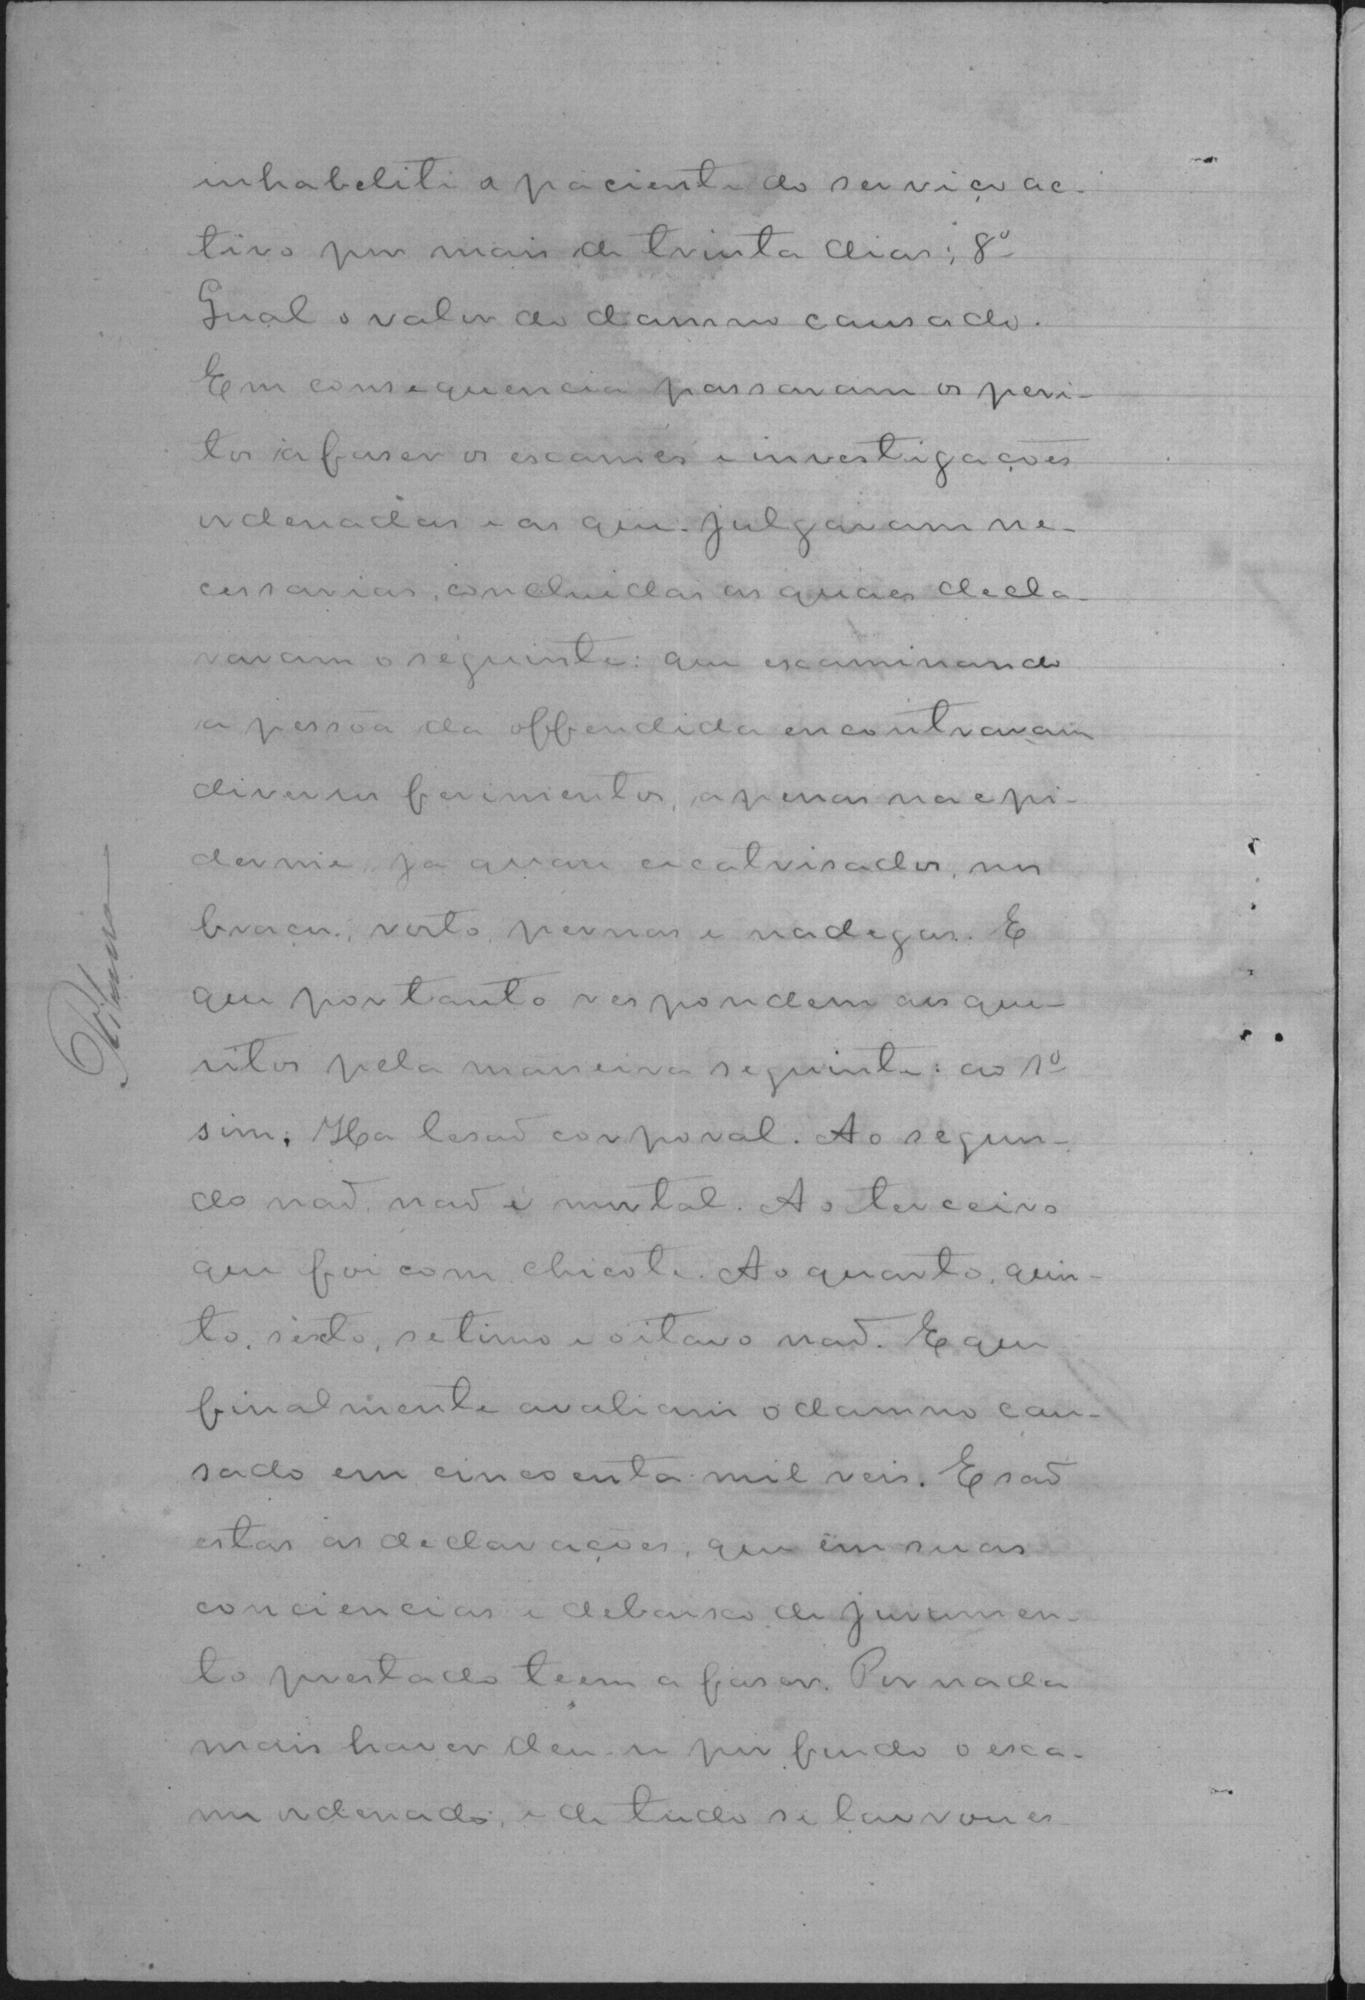 inhabelite a paciente do serviço ac-
tivo por mais de trinta dias; 8º
Qual o valor do damno causado.
Em consequencia passaram os peri-
tos a faser os exames e investigações
ordenadas e as que julgaram ne-
cessarias, concluidas as quaes decla-
raram o seguinte: que examinando
a pessoa da offendida encontraram
diversos ferimentos, apenas na epi-
derme, ja quase cicatrisados, nos
braços, rosto, pernas e nadegas. E
que portanto respondem aos que-
sitos pela maneira seguinte: ao 1º
sim. Ha lesaõ corporal. Ao segun-
do naõ, naõ é mortal. Ao terceiro
que foi com chicote. Ao quarto, quin-
to, sexto, setimo e oitavo naõ. E que
finalmente avaliam o damno cau-
sado em cincoenta mil reis. E saõ
estas as declarações, que em suas
conciencias e debaixo de juramen-
to prestado teem a faser. Por nada
mais haver deu-se por findo o exa-
me ordenado, e de tudo se lavrou es-